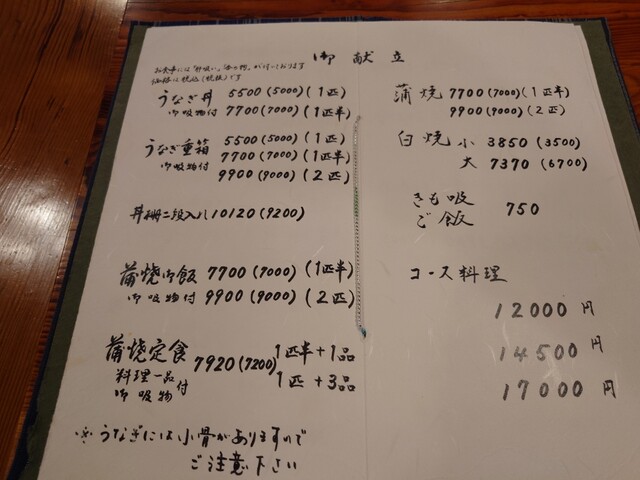 御献立
お食事には「肝吸い」「香の物」が付いております
価格は税込(税抜)です
うなぎ丼 5500(5000)(1匹)
御吸物付 7700(7000)(1匹半)
うなぎ重箱 5500(5000)(1匹)
御吸物付 7700(7000)(1匹半)
9900(9000)(2匹)
丼 二段入り 10120(9200)
蒲焼御飯 7700(7000)(1匹半)
御吸物付 9900(9000)(2匹)
蒲焼定食 7920(7200) 1匹半+1品
料理一品付 1匹+3品
御吸物
※うなぎには小骨がありますので
ご注意下さい
蒲焼 7700(7000)(1匹半)
9900(9000)(2匹)
白焼 小 3850(3500)
大 7370(6700)
きも吸
ご飯 750
コース料理
12000円
14500円
17000円